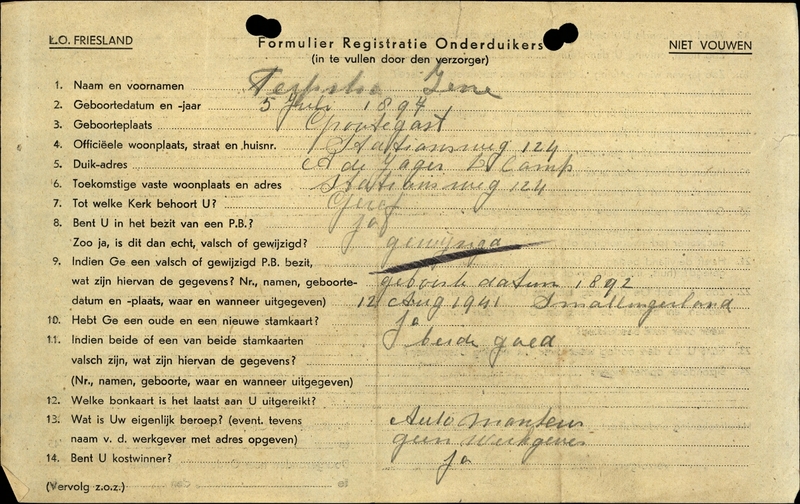 L.O. FRIESLAND
Formulier Registratie Onderduikers
NIET VOUWEN
(in te vullen door den verzorger)
1. Naam en voornamen Terpstra Iene
2. Geboortedatum en -jaar 5 Juli 1897
3. Geboorteplaats Grootegast
4. Officiëele woonplaats, straat en huisnr. Stationsweg 124
5. Duik-adres de Jager
6. Toekomstige vaste woonplaats en adres Stationsweg 124
7. Tot welke Kerk behoort U? Geref
8. Bent U in het bezit van een P.B.? ja
Zoo ja, is dit dan echt, valsch of gewijzigd? gewijzigd
9. Indien Ge een valsch of gewijzigd P.B. bezit,
wat zijn hiervan de gegevens? Nr., namen, geboorte- geboorte datum 1892
datum en -plaats, waar en wanneer uitgegeven) 12 Aug 1941 Smallingerland
10. Hebt Ge een oude en een nieuwe stamkaart? ja
11. Indien beide of een van beide stamkaarten beide goed
valsch zijn, wat zijn hiervan de gegevens?
(Nr., namen, geboorte, waar en wanneer uitgegeven)
12. Welke bonkaart is het laatst aan U uitgereikt?
13. Wat is Uw eigenlijk beroep? (event. tevens Auto monteur
naam v. d. werkgever met adres opgeven) geen werkgever
14. Bent U kostwinner? ja
(Vervolg z.o.z.)